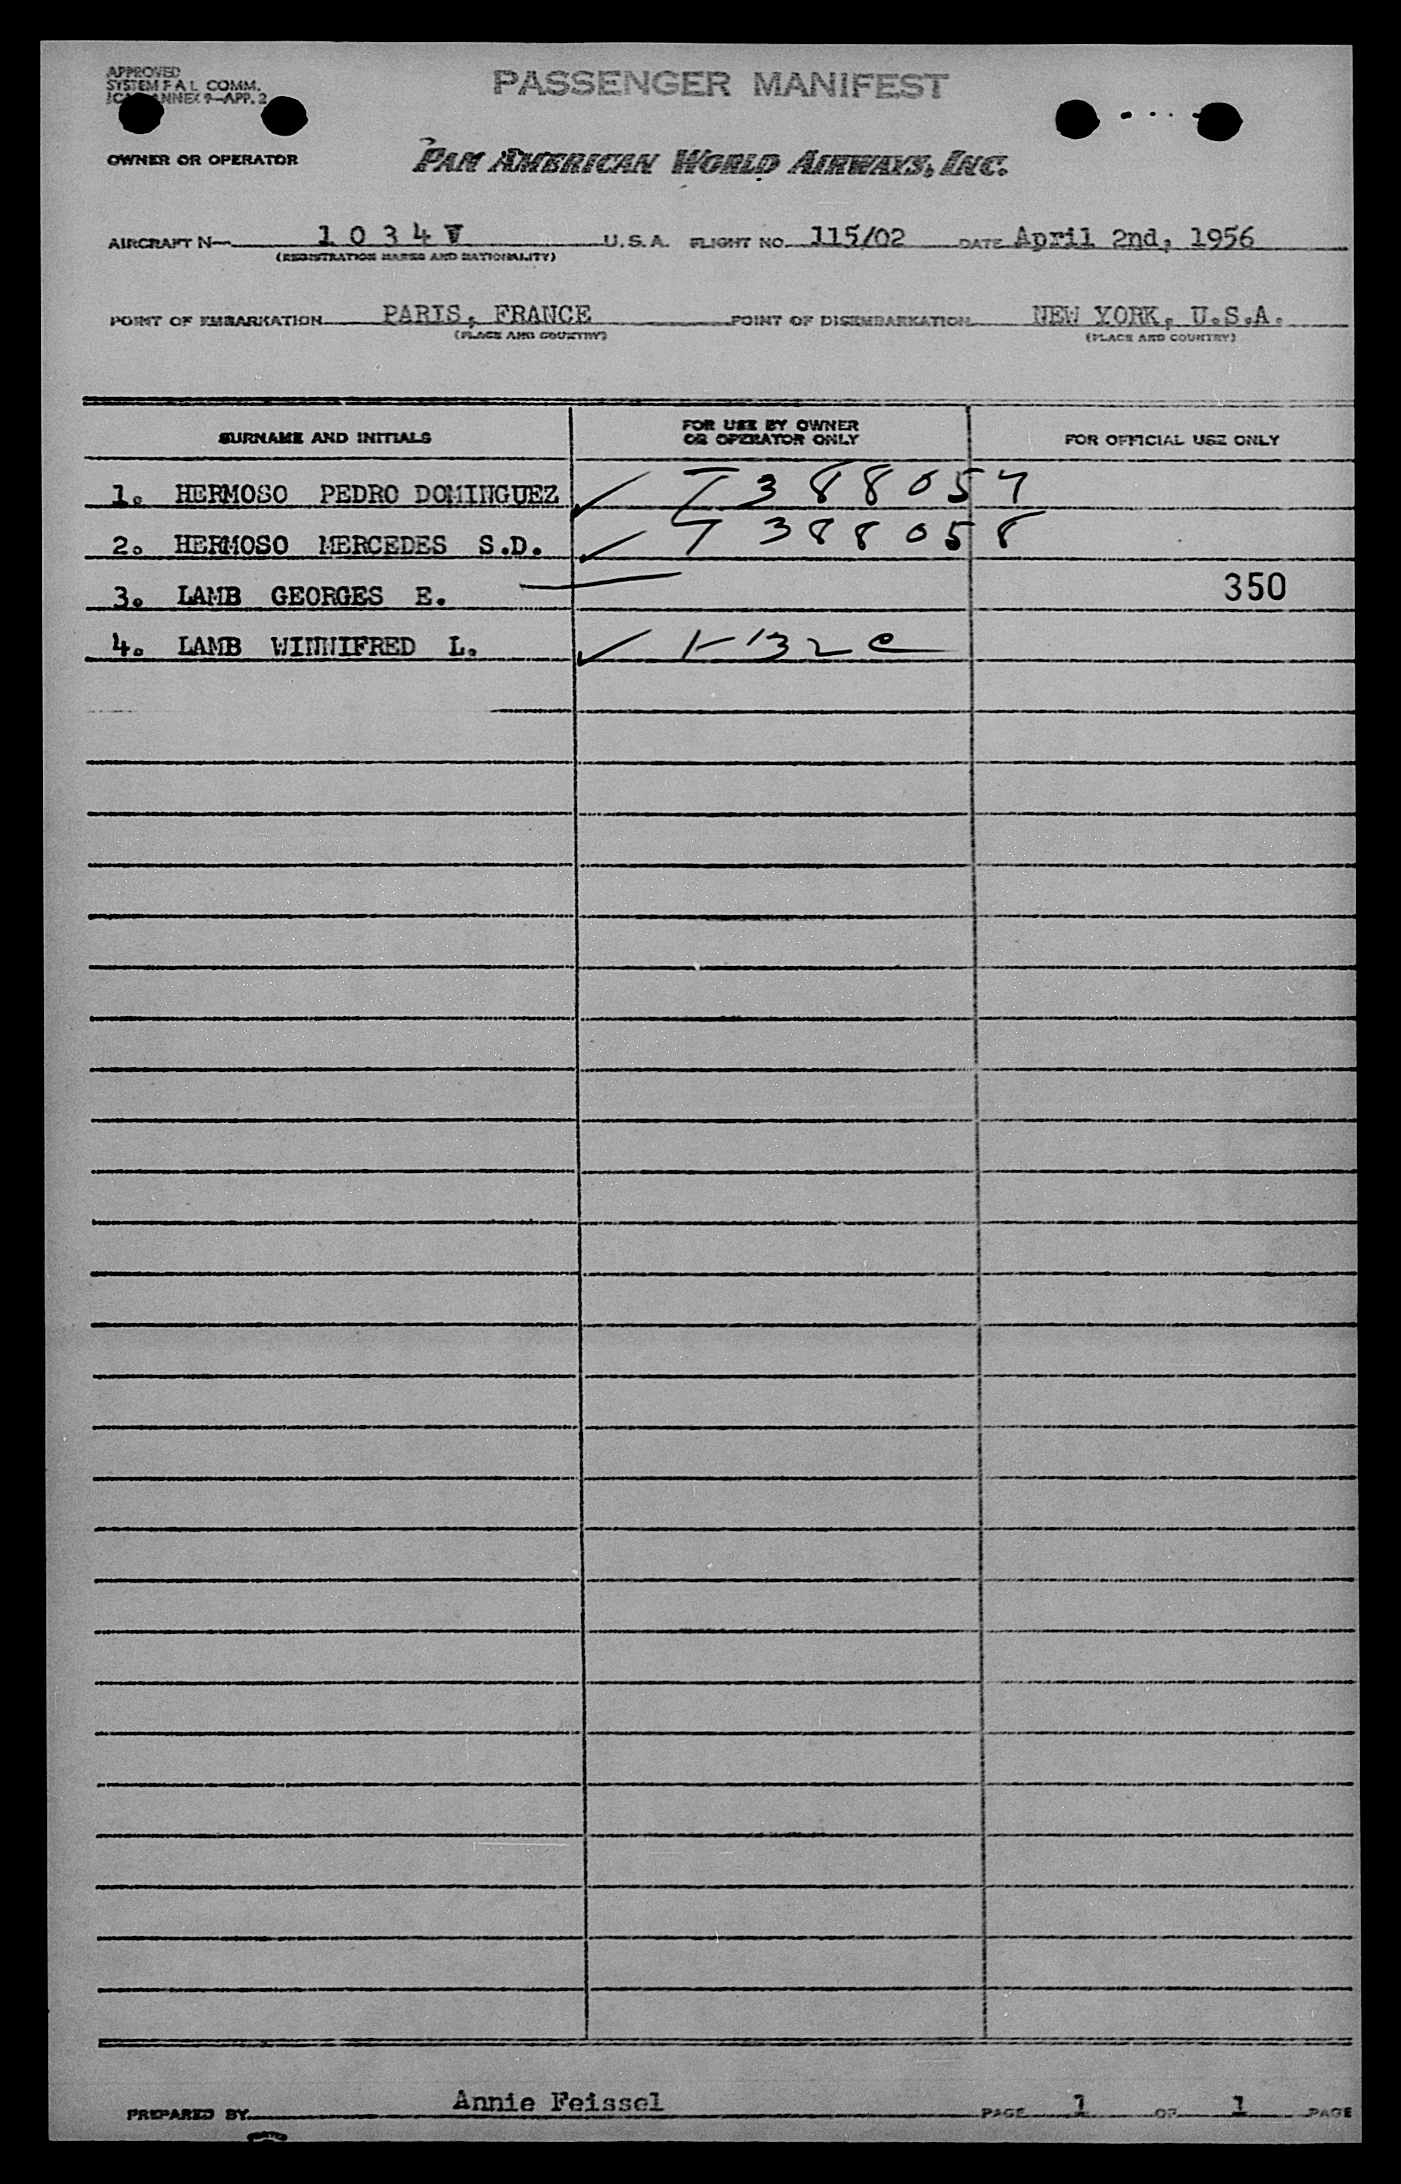 APPROVED
SYSTEM F A L COMM.
ANNEX 9—APP. 2
PASSENGER MANIFEST
OWNER OR OPERATOR
PAN AMERICAN WORLD AIRWAYS, INC.
AIRCRAFT N— 1 0 3 4 V U.S.A. FLIGHT NO. 115/02 DATE April 2nd, 1956
(REGISTRATION MARKS AND NATIONALITY)
POINT OF EMBARKATION PARIS, FRANCE POINT OF DISEMBARKATION NEW YORK, U.S.A.
(PLACE AND COUNTRY) (PLACE AND COUNTRY)
SURNAME AND INITIALS FOR USE BY OWNER OR OPERATOR ONLY FOR OFFICIAL USE ONLY
1. HERMOSO PEDRO DOMINGUEZ ✓ 388057
2. HERMOSO MERCEDES S.D. ✓ 388058
3. LAMB GEORGES E. 350
4. LAMB WINNIFRED L. ✓
PREPARED BY Annie Feissel PAGE 1 OF 1 PAGE